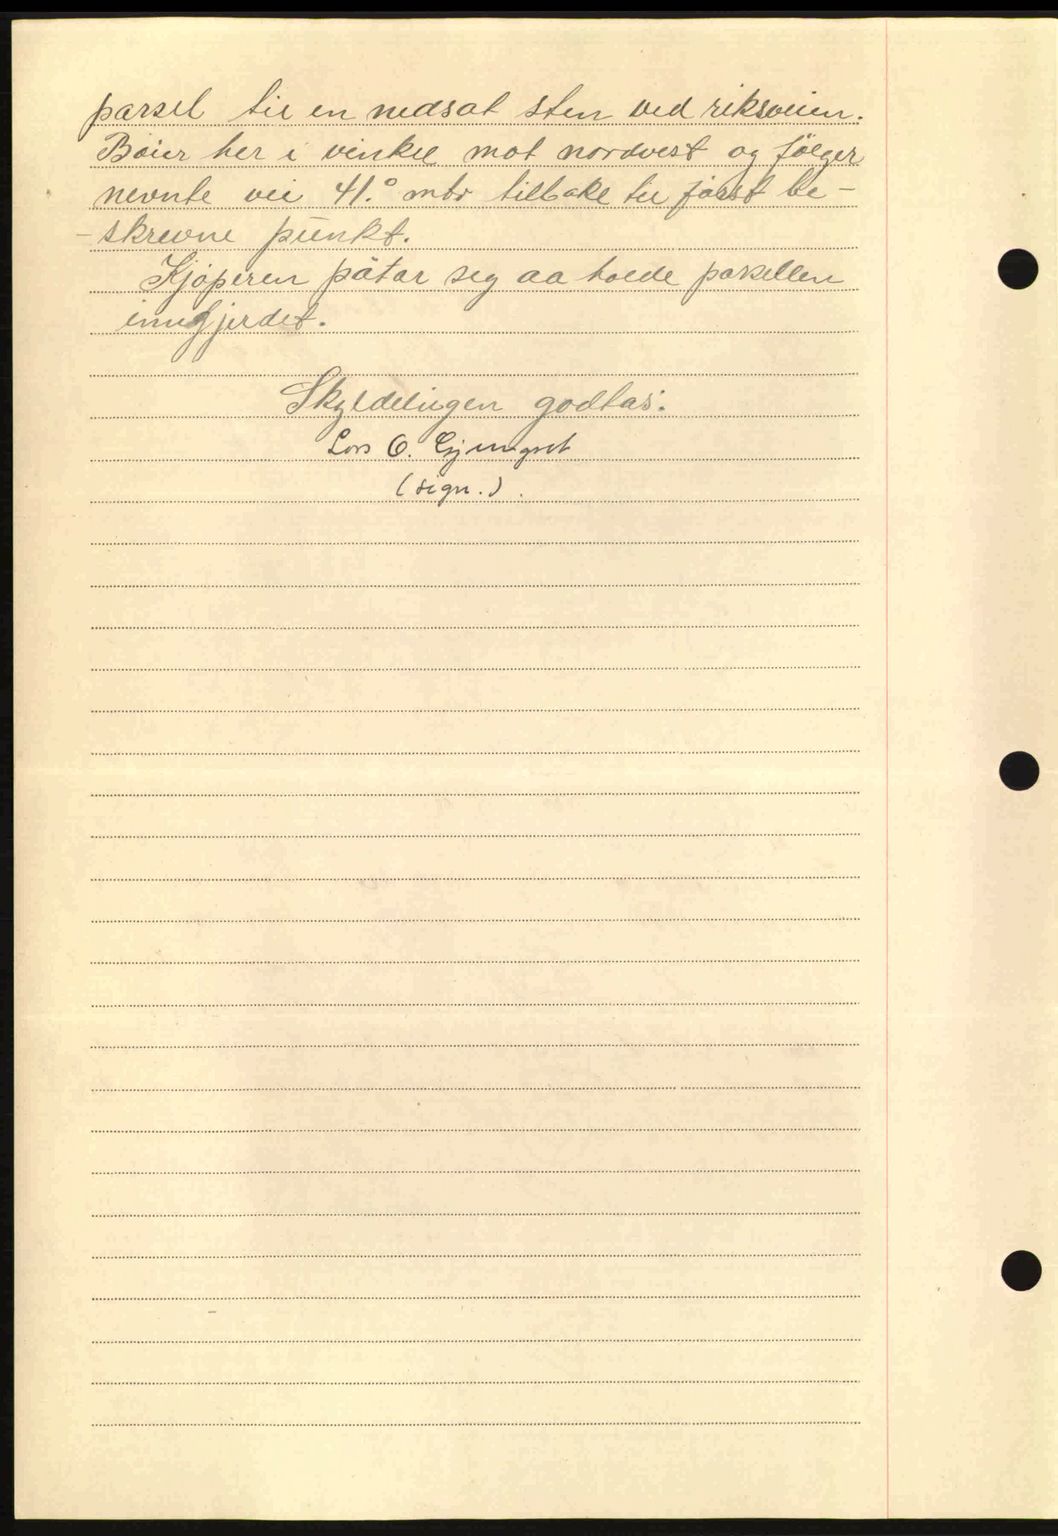 parsel til en nedsat sten ved riksveien.
Bøier her i vinkel mot nordvest og følger
nevnte vei 41.° mtr tilbake til først be-
-skrevne punkt.
Kjøperen påtar seg aa holde parsellen
inngjerdet.
Skyldelingen godtas:
Lars O.
(sign.).